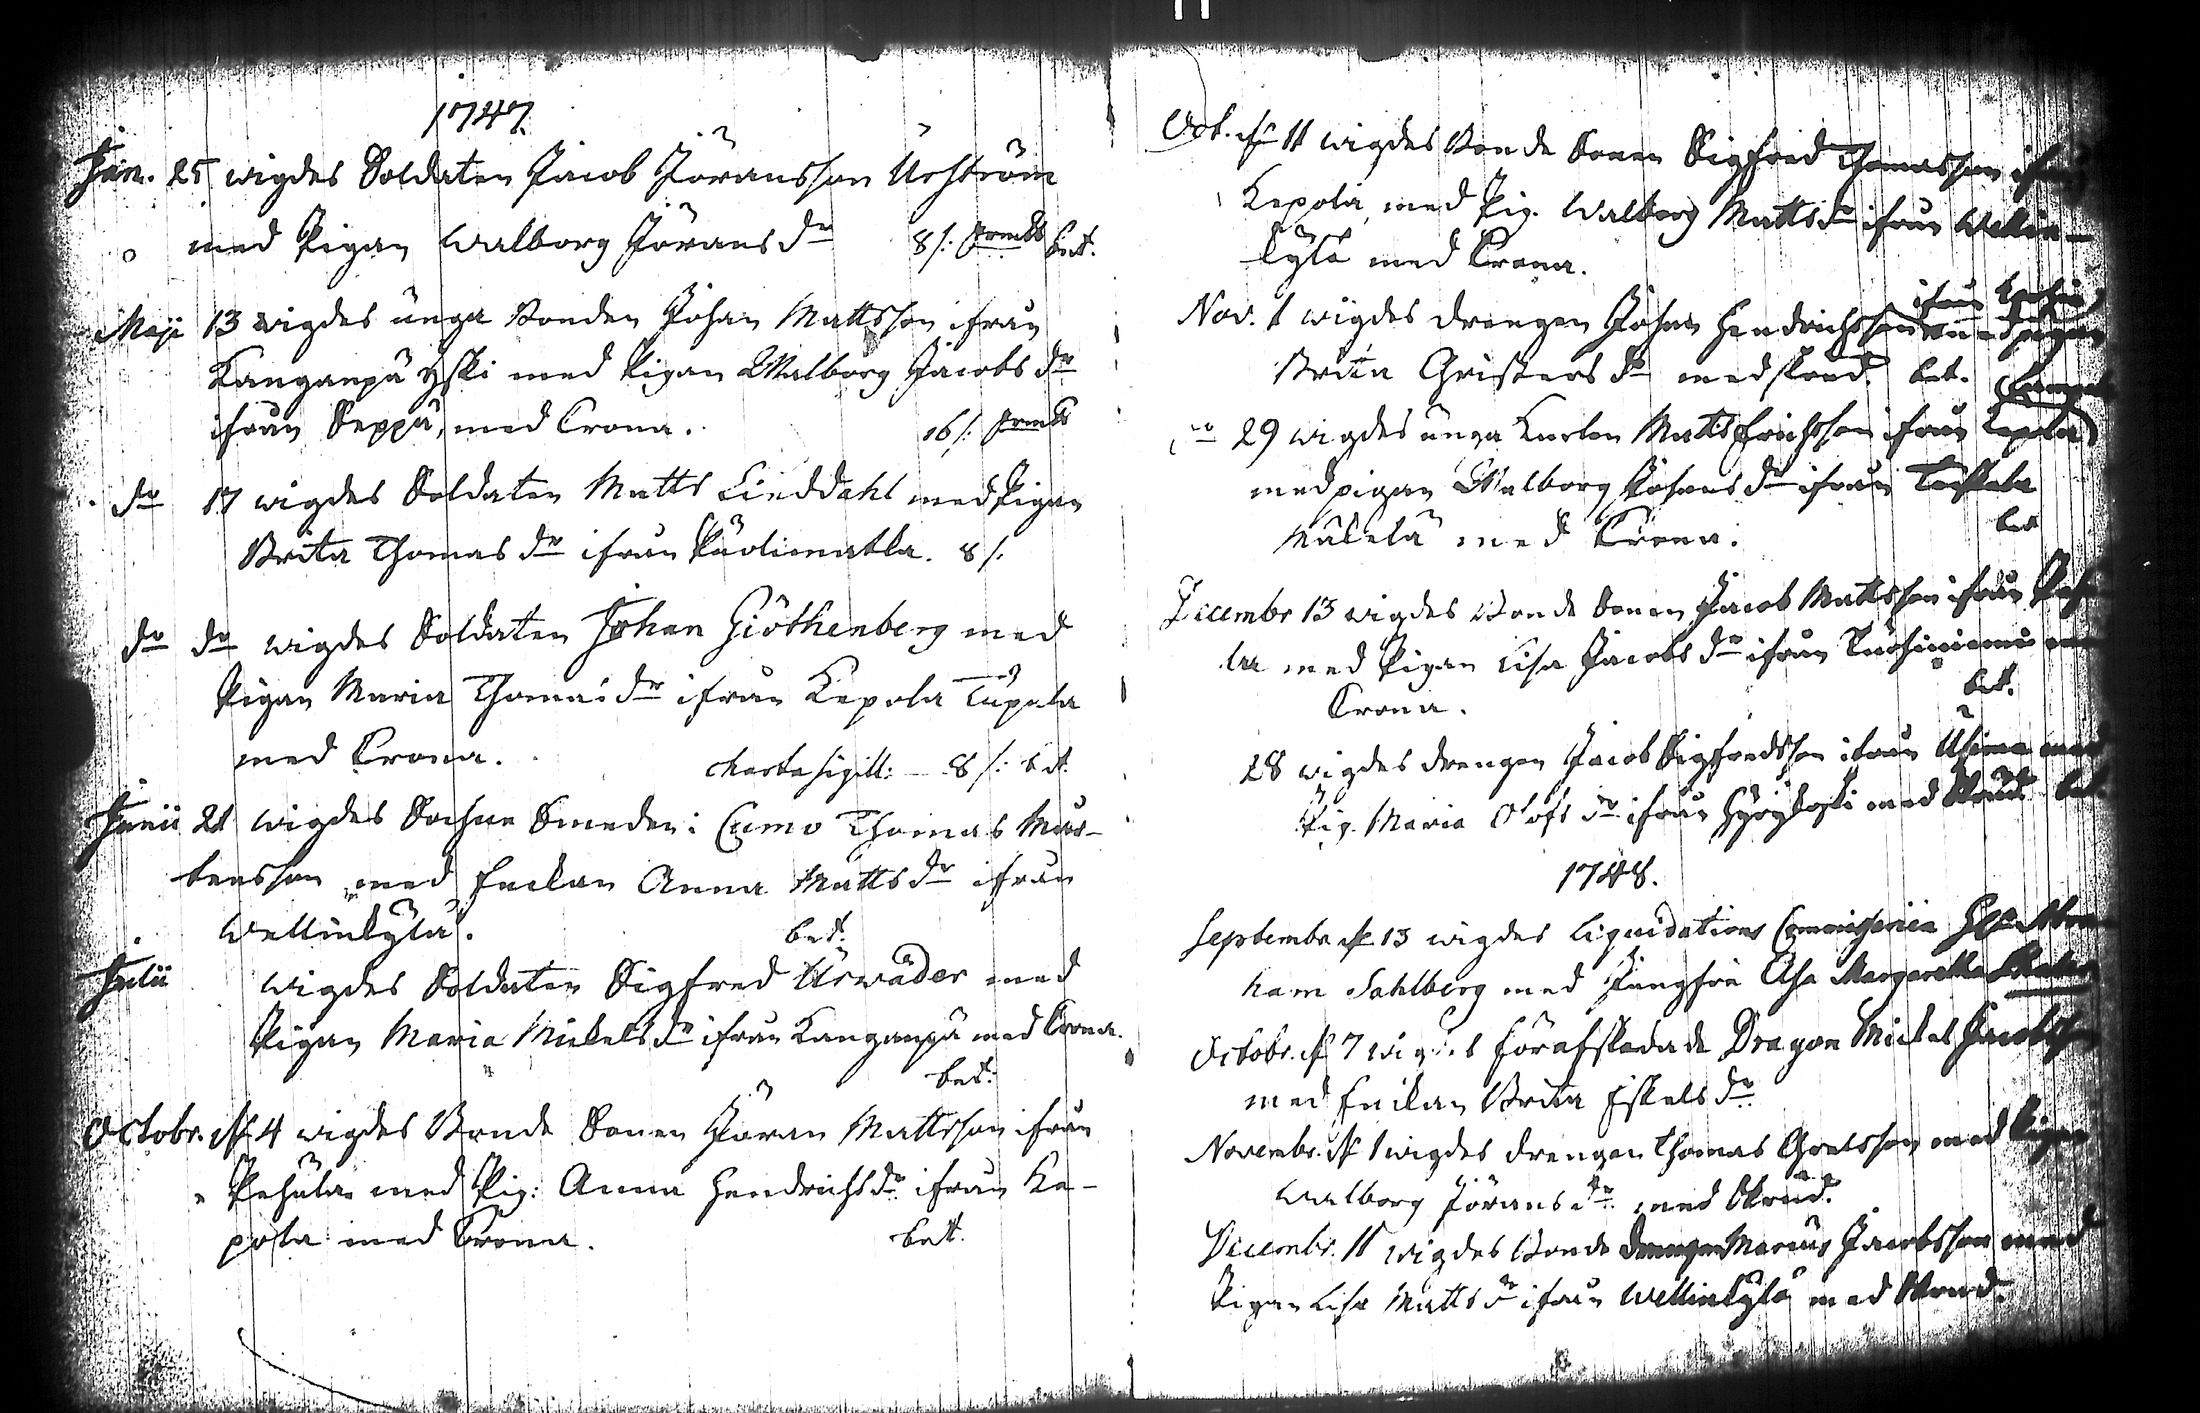 1747.
Jan. 25 wigdes Soldaten Jacob Jöransson Urström
med Pigan Walborg Jörans dr 8 /: bet.
Maji 13 wigdes unga Bonden Johan Mattsson ifrån
Kanganpä Yski med Pigan Walborg Jacobs dr
ifrån Seppä, med Crona. 16 /:
dr 17 wigdes Soldaten Matts Linddahl med Pigan
Brita Thomas dr ifrån Puolimatka. 8 /:
dr dr wigdes Soldaten Johan Giöthenberg med
Pigan Maria Thomæ dr ifrån Kepola Tupala
med Crona. charta sigill: 8 /: bet.
Junii 21 wigdes Sochne Smeden i Cumo Thomas Mår-
tensson med Enckan Anna Matts dr ifrån
Wellinkylä. bet.
Julii wigdes Soldaten Sigfred Urwäder med
Pigan Maria Mickels dr ifrån Kanganpä med Crona.
bet.
Octobr. d. 4 wigdes Bonde Sonen Jöran Mattsson ifrån
Pehula med Pig: Anna Hendrichs dr ifrån Ke-
pola med Crona. bet.
Oct. d. 11 wigdes Bonde Sonen Sigfred Thomasson ifrån
Kepola, med Pig. Walborg Matts dr ifrån Wellin-
kylä med Crona.
ifrån
Nov. 1 wigdes drengen Johan Hendrichsson med Pigan
Brita Christers dr med skrud. bet.
29 wigdes unga Karlen Matts Erichsson ifrån Kepola
med pigan Walborg Johans dr ifrån
Mäkelä med Crona. bet
Decembr 13 wigdes Bonde Sonen Jacob Mattsson ifrån
la med Pigan Lisa Jacobs dr ifrån
Crona. bet.
28 wigdes drengen Jacob Sigfredsson ifrån med
Pig. Maria Olofs dr ifrån med Skrud bet.
1748.
Septembr d. 13 wigdes Liquidations Commissarien Abra
ham Sahlberg med Jungfru Margaretha
Octobr. d. 7 wigdes förafskedade Dragon Mickel Jacobsson
med Enckan Brita Eskels dr
Novembr. d. 1 wigdes drengen Thomas med Pigan
Walborg Jörans dr med Skrud.
Decembr. 11 wigdes Bonde drengen Marcus Jacobsson med
Pigan Lisa Matts dr ifrån Wellinkylä med Skrud.